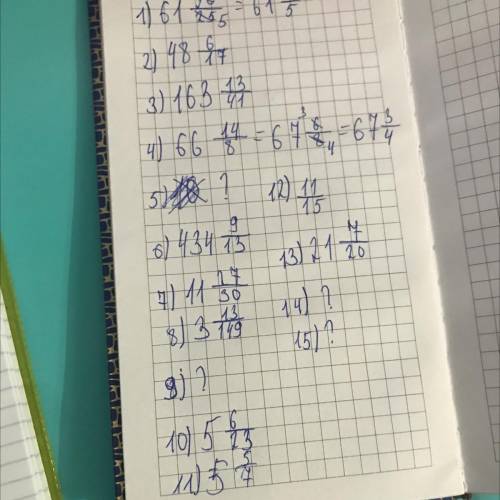 1) 61 25 5 = 61 5
2) 48 6/17
3) 163 13/41
4) 66 14/8 = 67 6/8 3 4 = 67 3/4
5) ? 12) 11/15
6) 434 9/13 13) 21 7/20
7) 11 17/30 14) ?
8) 3 13/149 15) ?
9) ?
10) 5 6/23
11) 5 3/7